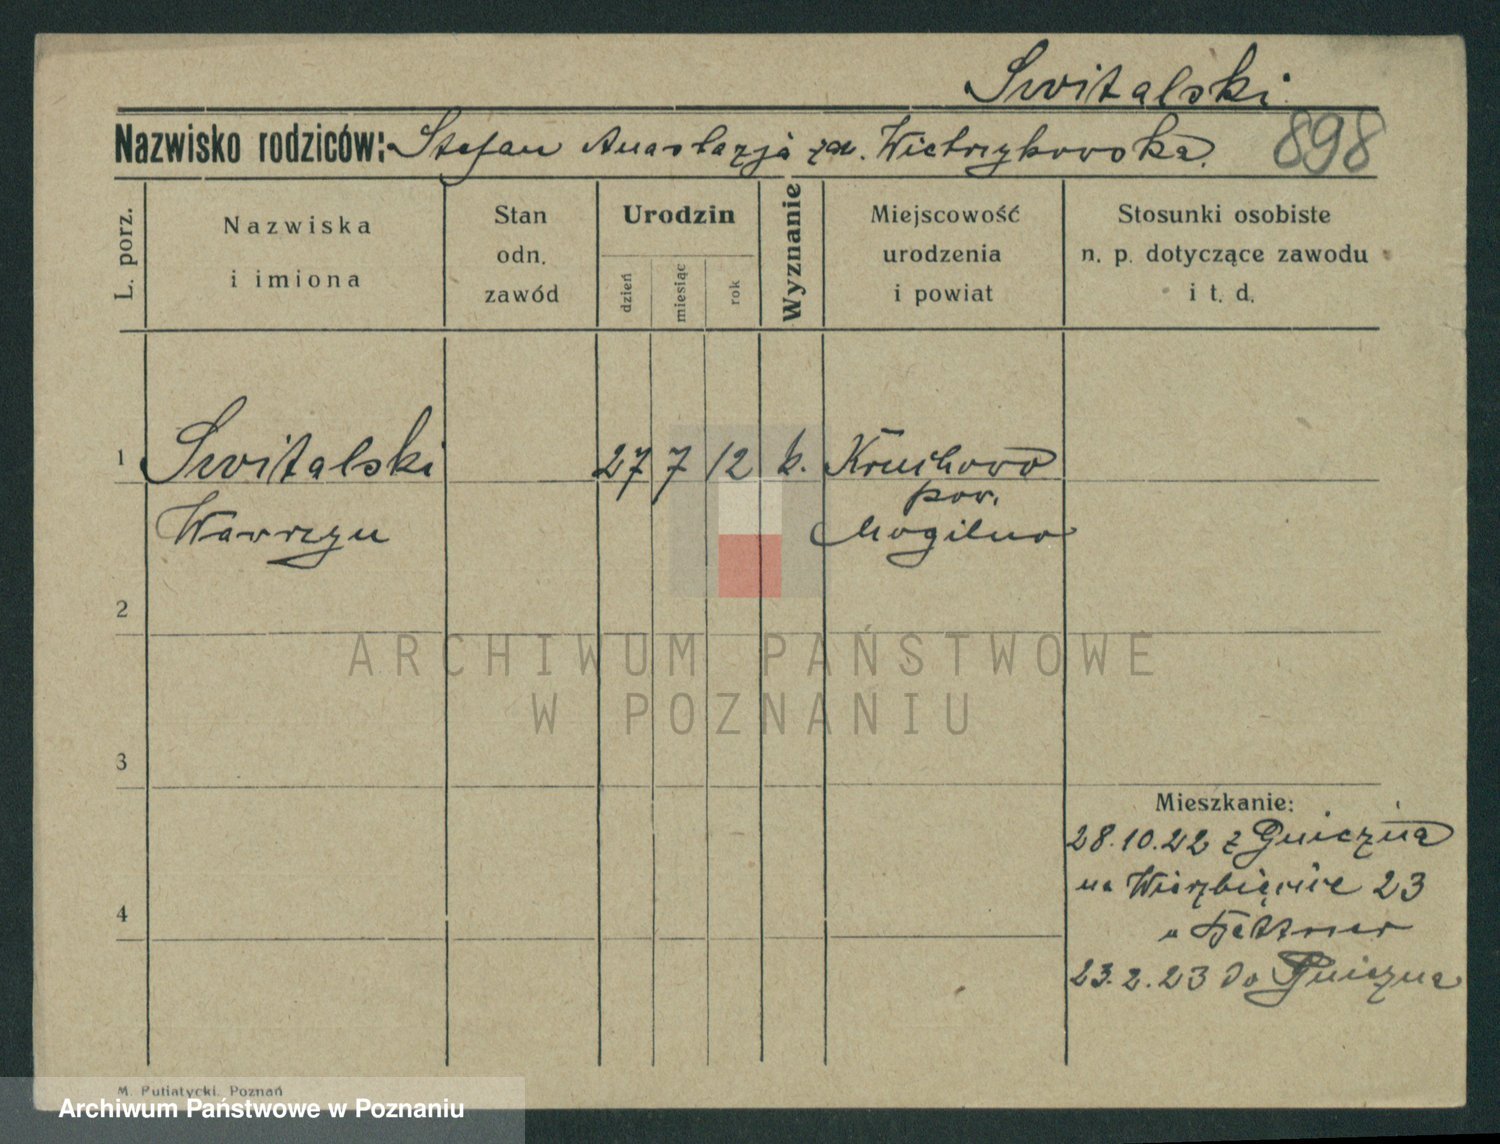 Switalski
Nazwisko rodziców: Stefan Anastazja zd. Wietrzykowska.
898
L. porz.
Nazwiska
i imiona
Stan
odn.
zawód
Urodzin
dzień
miesiąc
rok
Wyznanie
Miejscowość
urodzenia
i powiat
Stosunki osobiste
n. p. dotyczące zawodu
i t. d.
1 Switalski 27 7 12 k. Kruchowo
pow.
Wawrzyn Mogilno
2
ARCHIWUM PAŃSTWOWE
W POZNANIU
3
Mieszkanie:
28.10.22 z Gniezna
na Wierzbięcice 23
4
u
23.2.23 do Gniezna
M. Putiatycki, Poznań
Archiwum Państwowe w Poznaniu